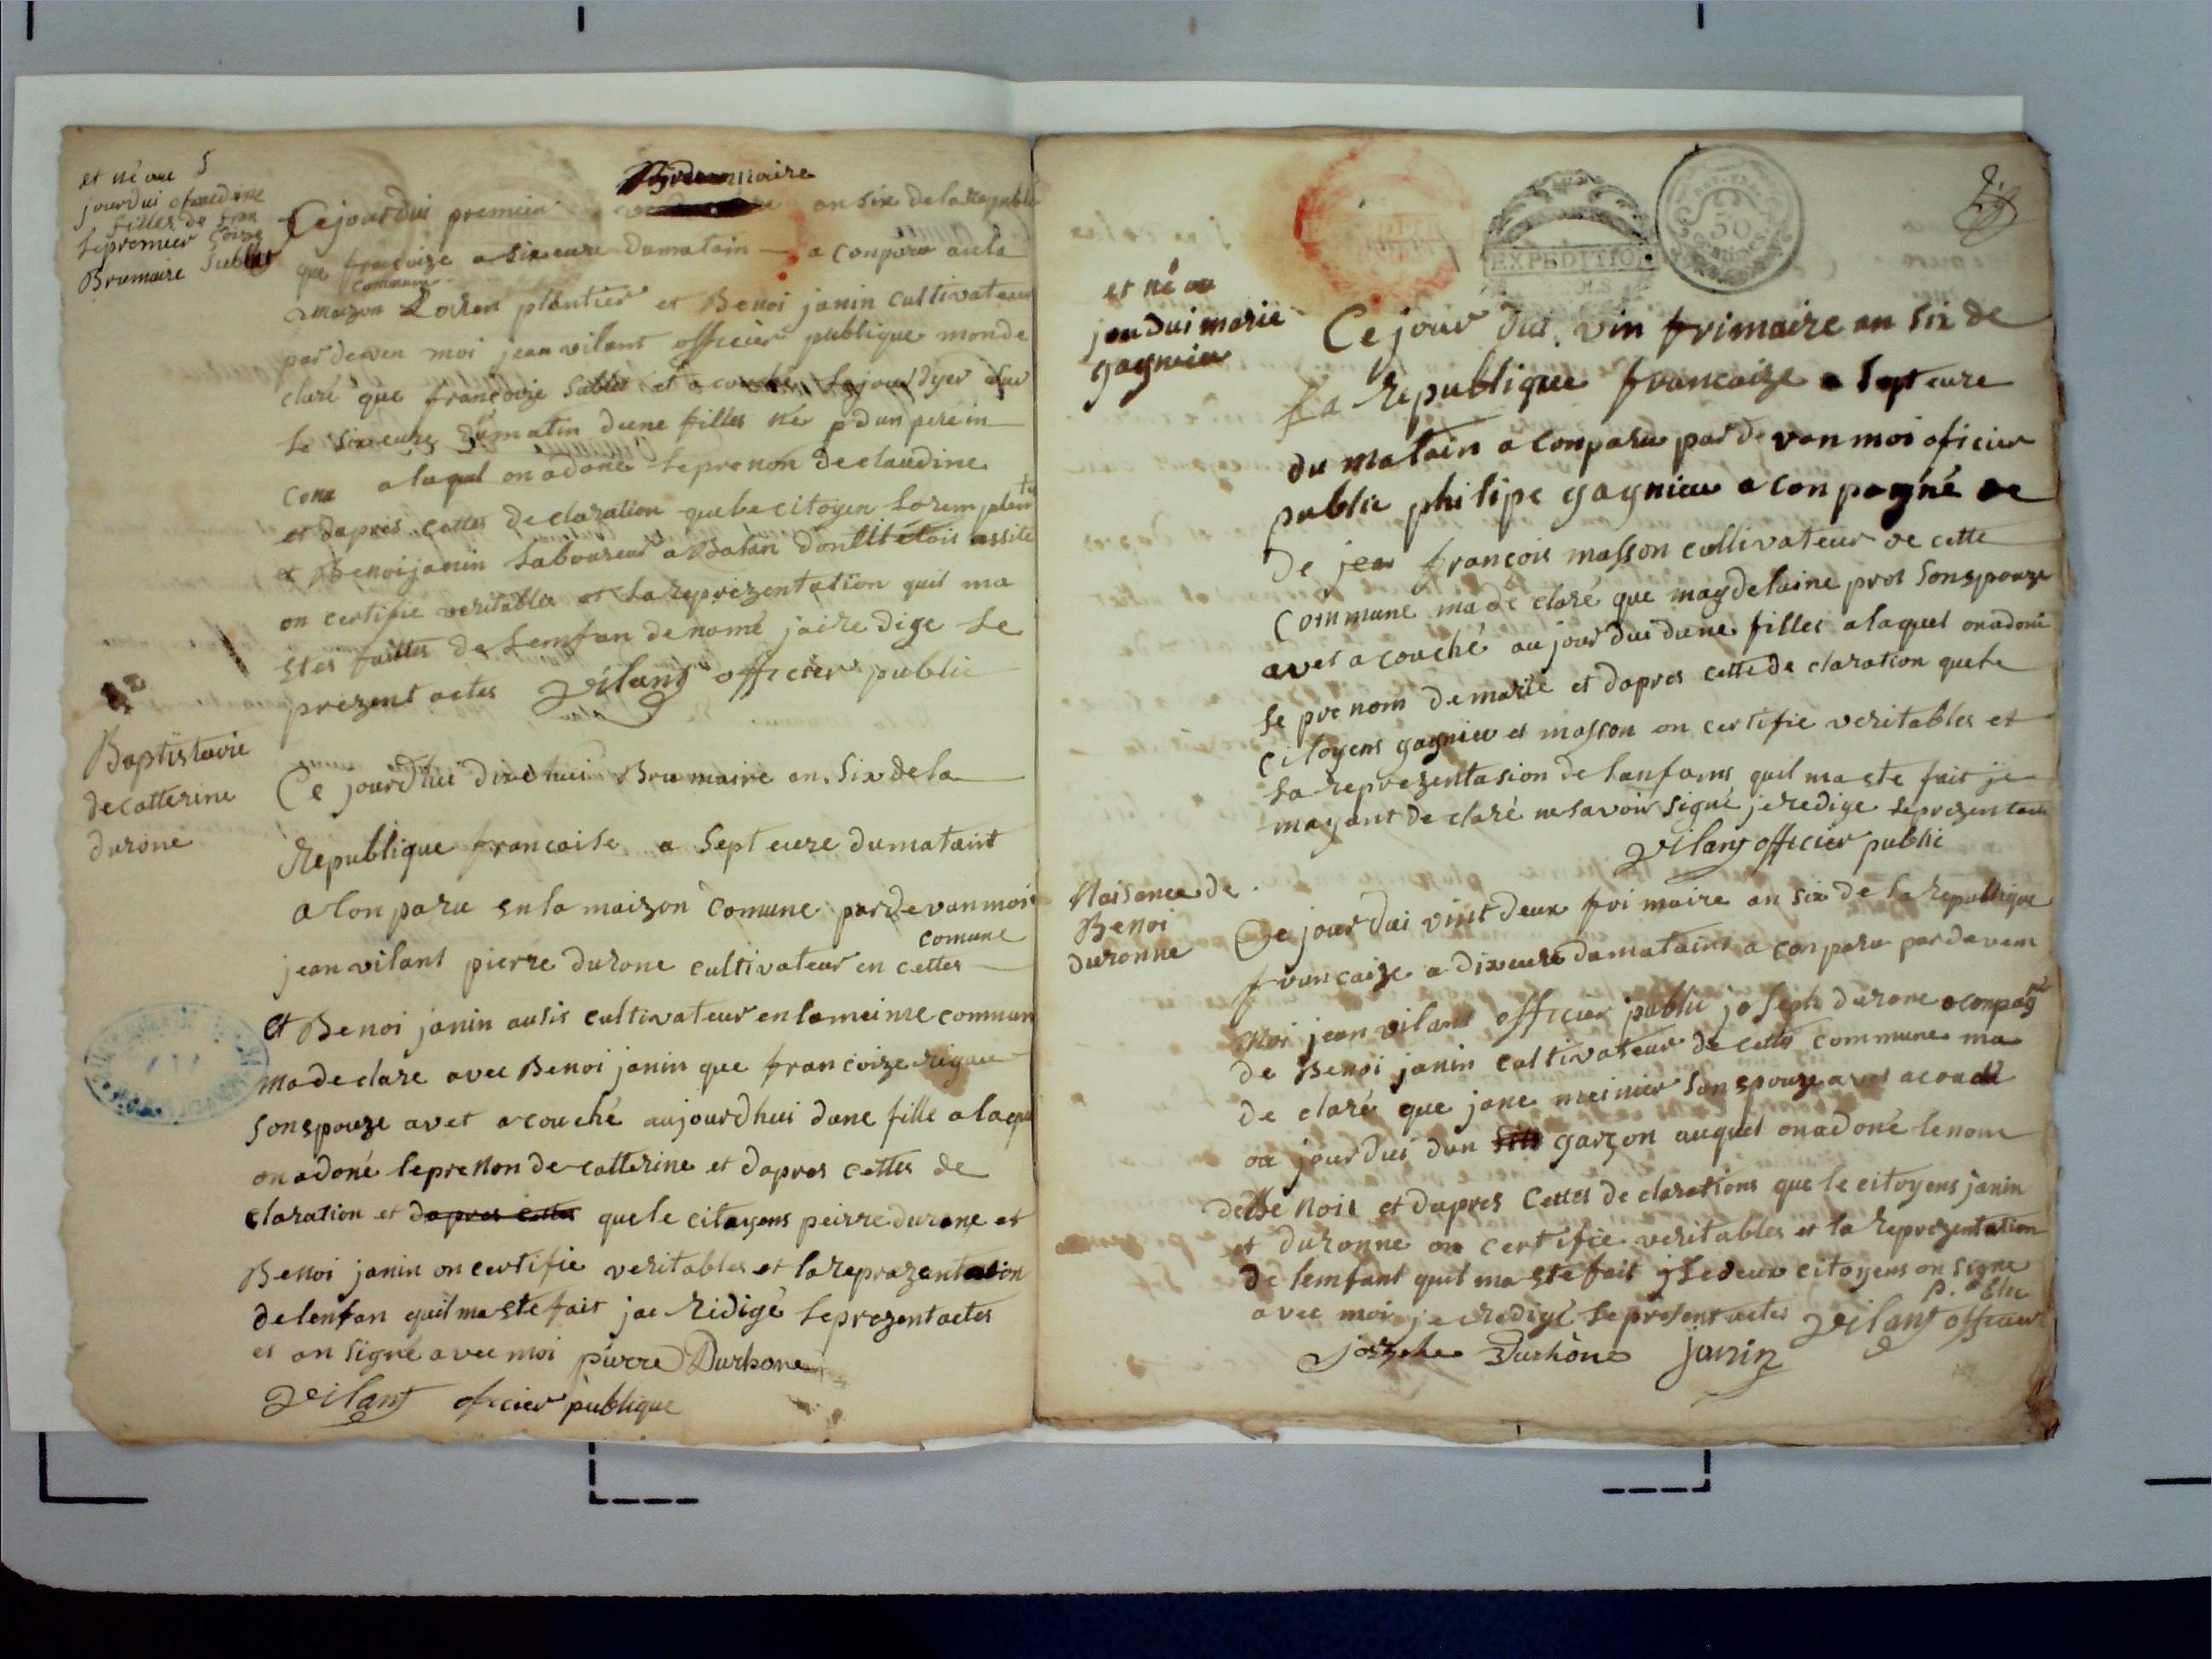 et né au 5
jourdui claudine
filles de fran
le premier coize
Brumaire Sublet
Brumaire
Ce jourdui premein an six de la republi
que francoize a six eure du matain a conparu au la
commune
maizon Loren plantier et Benoi janin cultivateur
par deven moi jean vilant officier publique mon de
claré que francoize Sublet et acouché le jour dyer
le six eure du matin dune filles né dun pere in
conu a laquel on a doné le prenon de claudine
et dapres cettes declaration que le citoyen Lorem plan
tie
et Benoi janin laboureur a Balan dont il étois assité
on certifié veritables et la reprezentation quil ma
stes faittes de lemfan denomé jai redige le
prezent actes Vilant officier public
Baptistavie
de catterine
durone
Ce jourdhui dixe huis Brumaire an six de la
Republique francoise a Sept eure du mataint
a Conparu en la maizon comune pardevan moi
comune
jean vilant pierre durone cultivateur en cettes
et Benoi janin ausis cultivateur en la meime commun
ma declare avec Benoi janin que francoize rigau
son epouze avet acouché aujourdhui dune fille a laque
on a doné le prenon de catterine et dapres cettes de
claration et dapres cettes que le citoyens peirre durone et
Benoi janin on certifie veritables et la reprazentasion
de lenfan quil ma ste fait jae ridigé le prezent actes
et on signé avec moi pierre Durhone
Vilant oficier publique
EXPEDITION
50
centimes
et né au
jourdui marie
gagnieu
Ce jour dui vin frimaire an six de
la republique francaize a Sept eure
du matain a conparu par devan moi oficier
public philipe gagnieu a conpagné de
de jean francois masson cultivateur de cette
commune ma de claré que magdelaine prot son epouze
avet acouché au jour dui dune filles a laquel on a doné
le prenom de marie et dapres cette de claration que le
citoyens gagnieu et masson on certifie veritables et
la reprezentasion de lanfans quil ma ste fait je
mayant declaré ne savoir signé je redige le prezent actes
Vilant officier public
Naisance de
Benoi
duronne
Ce jour dui vint deux frimaire an six de la republique
francaize a dix eure du mataint a conparu par davem
moi jean vilant officier public joseph durone aconpagné
de Benoi janin cultivateur de cette commune ma
de claré que jane meinier son epouze avet acouché
au jour dui dun garçon auquel on a doné le nom
de Be nois et dapres cettes declarations que le citoyens janin
et duronne on certifie veritables et la reprezentation
de lemfant quil ma ste fait le deux citoyens on signe
avec moi je redigé le present actes Vilant officier
public
josephe Durhone janin